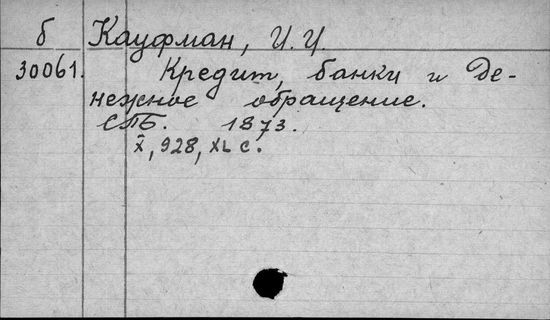 б Кауфман, И. И.
30061. Кредит, банки и де-
нежное обращение.
СПБ. 1873.
X, 928, XL с.